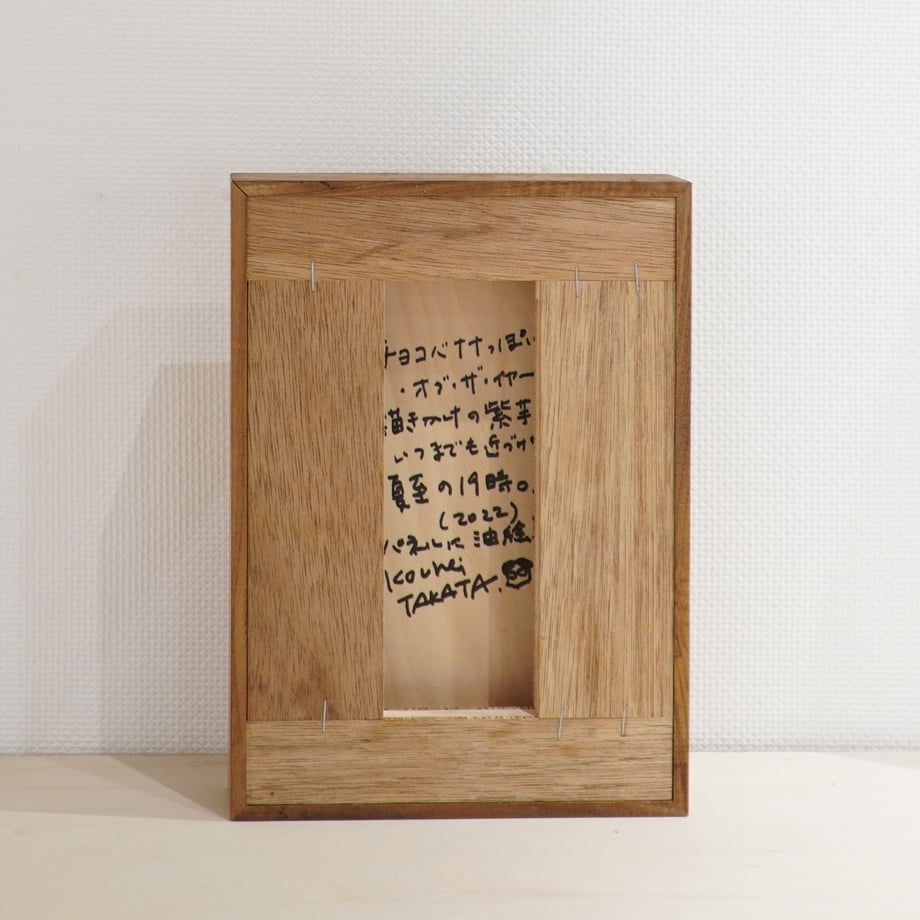 チョコバナナっぽい
・オブ・ザ・イヤー
描きかけの紫芋
いつまでも近づか
夏至の19時。
(2022)
パネルに油絵
Kouhei
TAKATA.